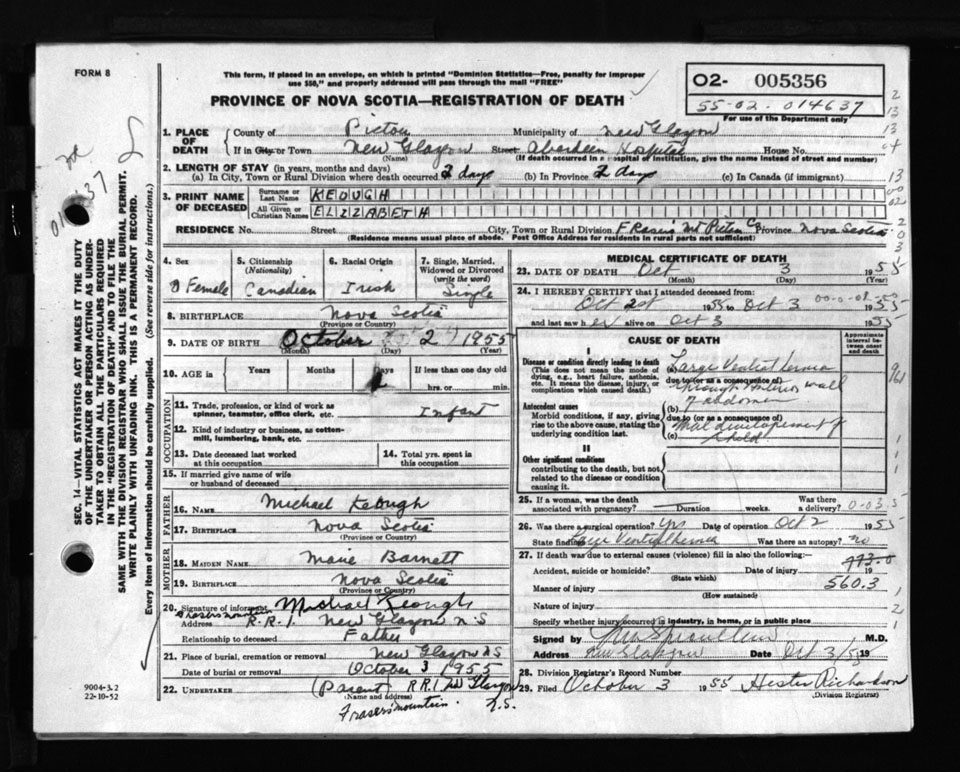 FORM 8
This form, if placed in an envelope, on which is printed "Dominion Statistics—Free, penalty for improper
use $50," and properly addressed will pass through the mail "FREE"
PROVINCE OF NOVA SCOTIA—REGISTRATION OF DEATH
O2- 005356
55-02-014637
For use of the Department only
1. PLACE OF DEATH
County of Pictou Municipality of New Glasgow
If in City or Town New Glasgow Street Aberdeen Hospital House No.
(Name) (If death occurred in a hospital of institution, give the name instead of street and number)
2. LENGTH OF STAY (in years, months and days)
(a) In City, Town or Rural Division where death occurred 2 days (b) In Province 2 days (c) In Canada (if immigrant)
3. PRINT NAME OF DECEASED
Surname or Last Name KEOUGH
All Given or Christian Names ELIZABETH
RESIDENCE No. Street City, Town or Rural Division Frasers Mt Pictou C Province Nova Scotia
(Residence means usual place of abode. Post Office Address for residents in rural parts not sufficient)
4. Sex Female
5. Citizenship (Nationality) Canadian
6. Racial Origin Irish
7. Single, Married, Widowed or Divorced (write the word) Single
8. BIRTHPLACE Nova Scotia
(Province or Country)
9. DATE OF BIRTH October 2 1955
(Month) (Day) (Year)
10. AGE in Years Months Days If less than one day old
hrs. or min.
OCCUPATION
11. Trade, profession, or kind of work as spinner, teamster, office clerk, etc. Infant
12. Kind of industry or business, as cotton-mill, lumbering, bank, etc.
13. Date deceased last worked at this occupation
14. Total yrs. spent in this occupation
15. If married give name of wife or husband of deceased
FATHER
16. NAME Michael Keough
17. BIRTHPLACE Nova Scotia
(Province or Country)
MOTHER
18. MAIDEN NAME Marie Barnett
19. BIRTHPLACE Nova Scotia
(Province or Country)
20. Signature of informant Michael Keough
Frasers mountain
Address R.R.1. New Glasgow N.S
Relationship to deceased Father
21. Place of burial, cremation or removal New Glasgow N.S
Date of burial or removal October 3 1955
22. UNDERTAKER (Parent) R.R.1 New Glasgow
(Name and address)
Frasers mountain. N.S.
MEDICAL CERTIFICATE OF DEATH
23. DATE OF DEATH Oct 3 1955
(Month) (Day) (Year)
24. I HEREBY CERTIFY that I attended deceased from:
Oct 2st 1955 to Oct 3 1955
and last saw her alive on Oct 3 1955
CAUSE OF DEATH
Approximate interval between onset and death
I
Disease or condition directly leading to death
(This does not mean the mode of dying, e.g., heart failure, asthenia, etc. It means the disease, injury, or complication which caused death.)
(a) Large Ventral hernia
due to (or as a consequence of)
through Anterior wall
(b) of abdomen
Antecedent causes
Morbid conditions, if any, giving rise to the above cause, stating the underlying condition last.
due to (or as a consequence of)
Mal development of
(c) child
II
Other significant conditions
contributing to the death, but not related to the disease or condition causing it.
25. If a woman, was the death associated with pregnancy? Duration weeks. Was there a delivery?
0-03.5
26. Was there a surgical operation? Yes Date of operation Oct 2 1955
State findings Large Ventral hernia Was there an autopsy? no
27. If death was due to external causes (violence) fill in also the following:—
Accident, suicide or homicide? Date of injury 19
(State which)
Manner of injury 560.3
(How sustained)
Nature of injury
Specify whether injury occurred in industry, in home, or in public place
Signed by M.D.
Address New Glasgow Date Oct 3/55 19
28. Division Registrar's Record Number
29. Filed October 3 1955 Hester Richardson
(Division Registrar)
SEC. 14—VITAL STATISTICS ACT MAKES IT THE DUTY
OF THE UNDERTAKER OR PERSON ACTING AS UNDER-
TAKER TO OBTAIN ALL THE PARTICULARS REQUIRED
IN THE "REGISTRATION OF DEATH" AND TO FILE THE
SAME WITH THE DIVISION REGISTRAR WHO SHALL ISSUE THE BURIAL PERMIT.
WRITE PLAINLY WITH UNFADING INK. THIS IS A PERMANENT RECORD.
Every item of information should be carefully supplied. (See reverse side for instructions.)
9004-3.2
22-10-52